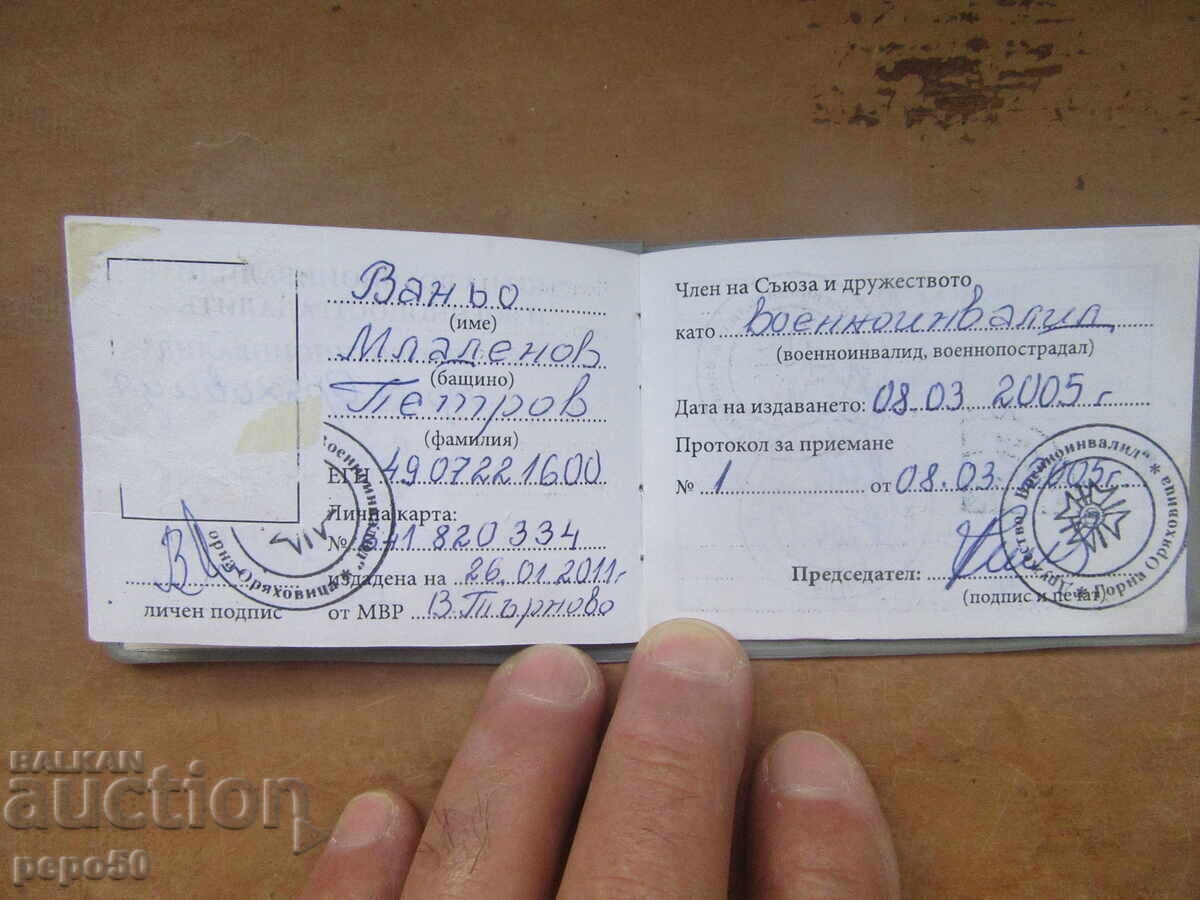 Ваньо
(име)
Младенов
(бащино)
Петров
(фамилия)
ЕГН 4907221600
Лична карта:
№ 641820334
издадена на 26.01.2011г
от МВР В.Търново
личен подпис
"Военноинвалид" * Горна Оряховица *
Член на Съюза и дружеството
като военноинвалид
(военноинвалид, военнопострадал)
Дата на издаването: 08.03 2005 г
Протокол за приемане
№ 1 от 08.03. 2005г.
Председател:
(подпис и печат)
Дружество "Военноинвалид" * Горна Оряховица *
BALKAN
auction
pepo50